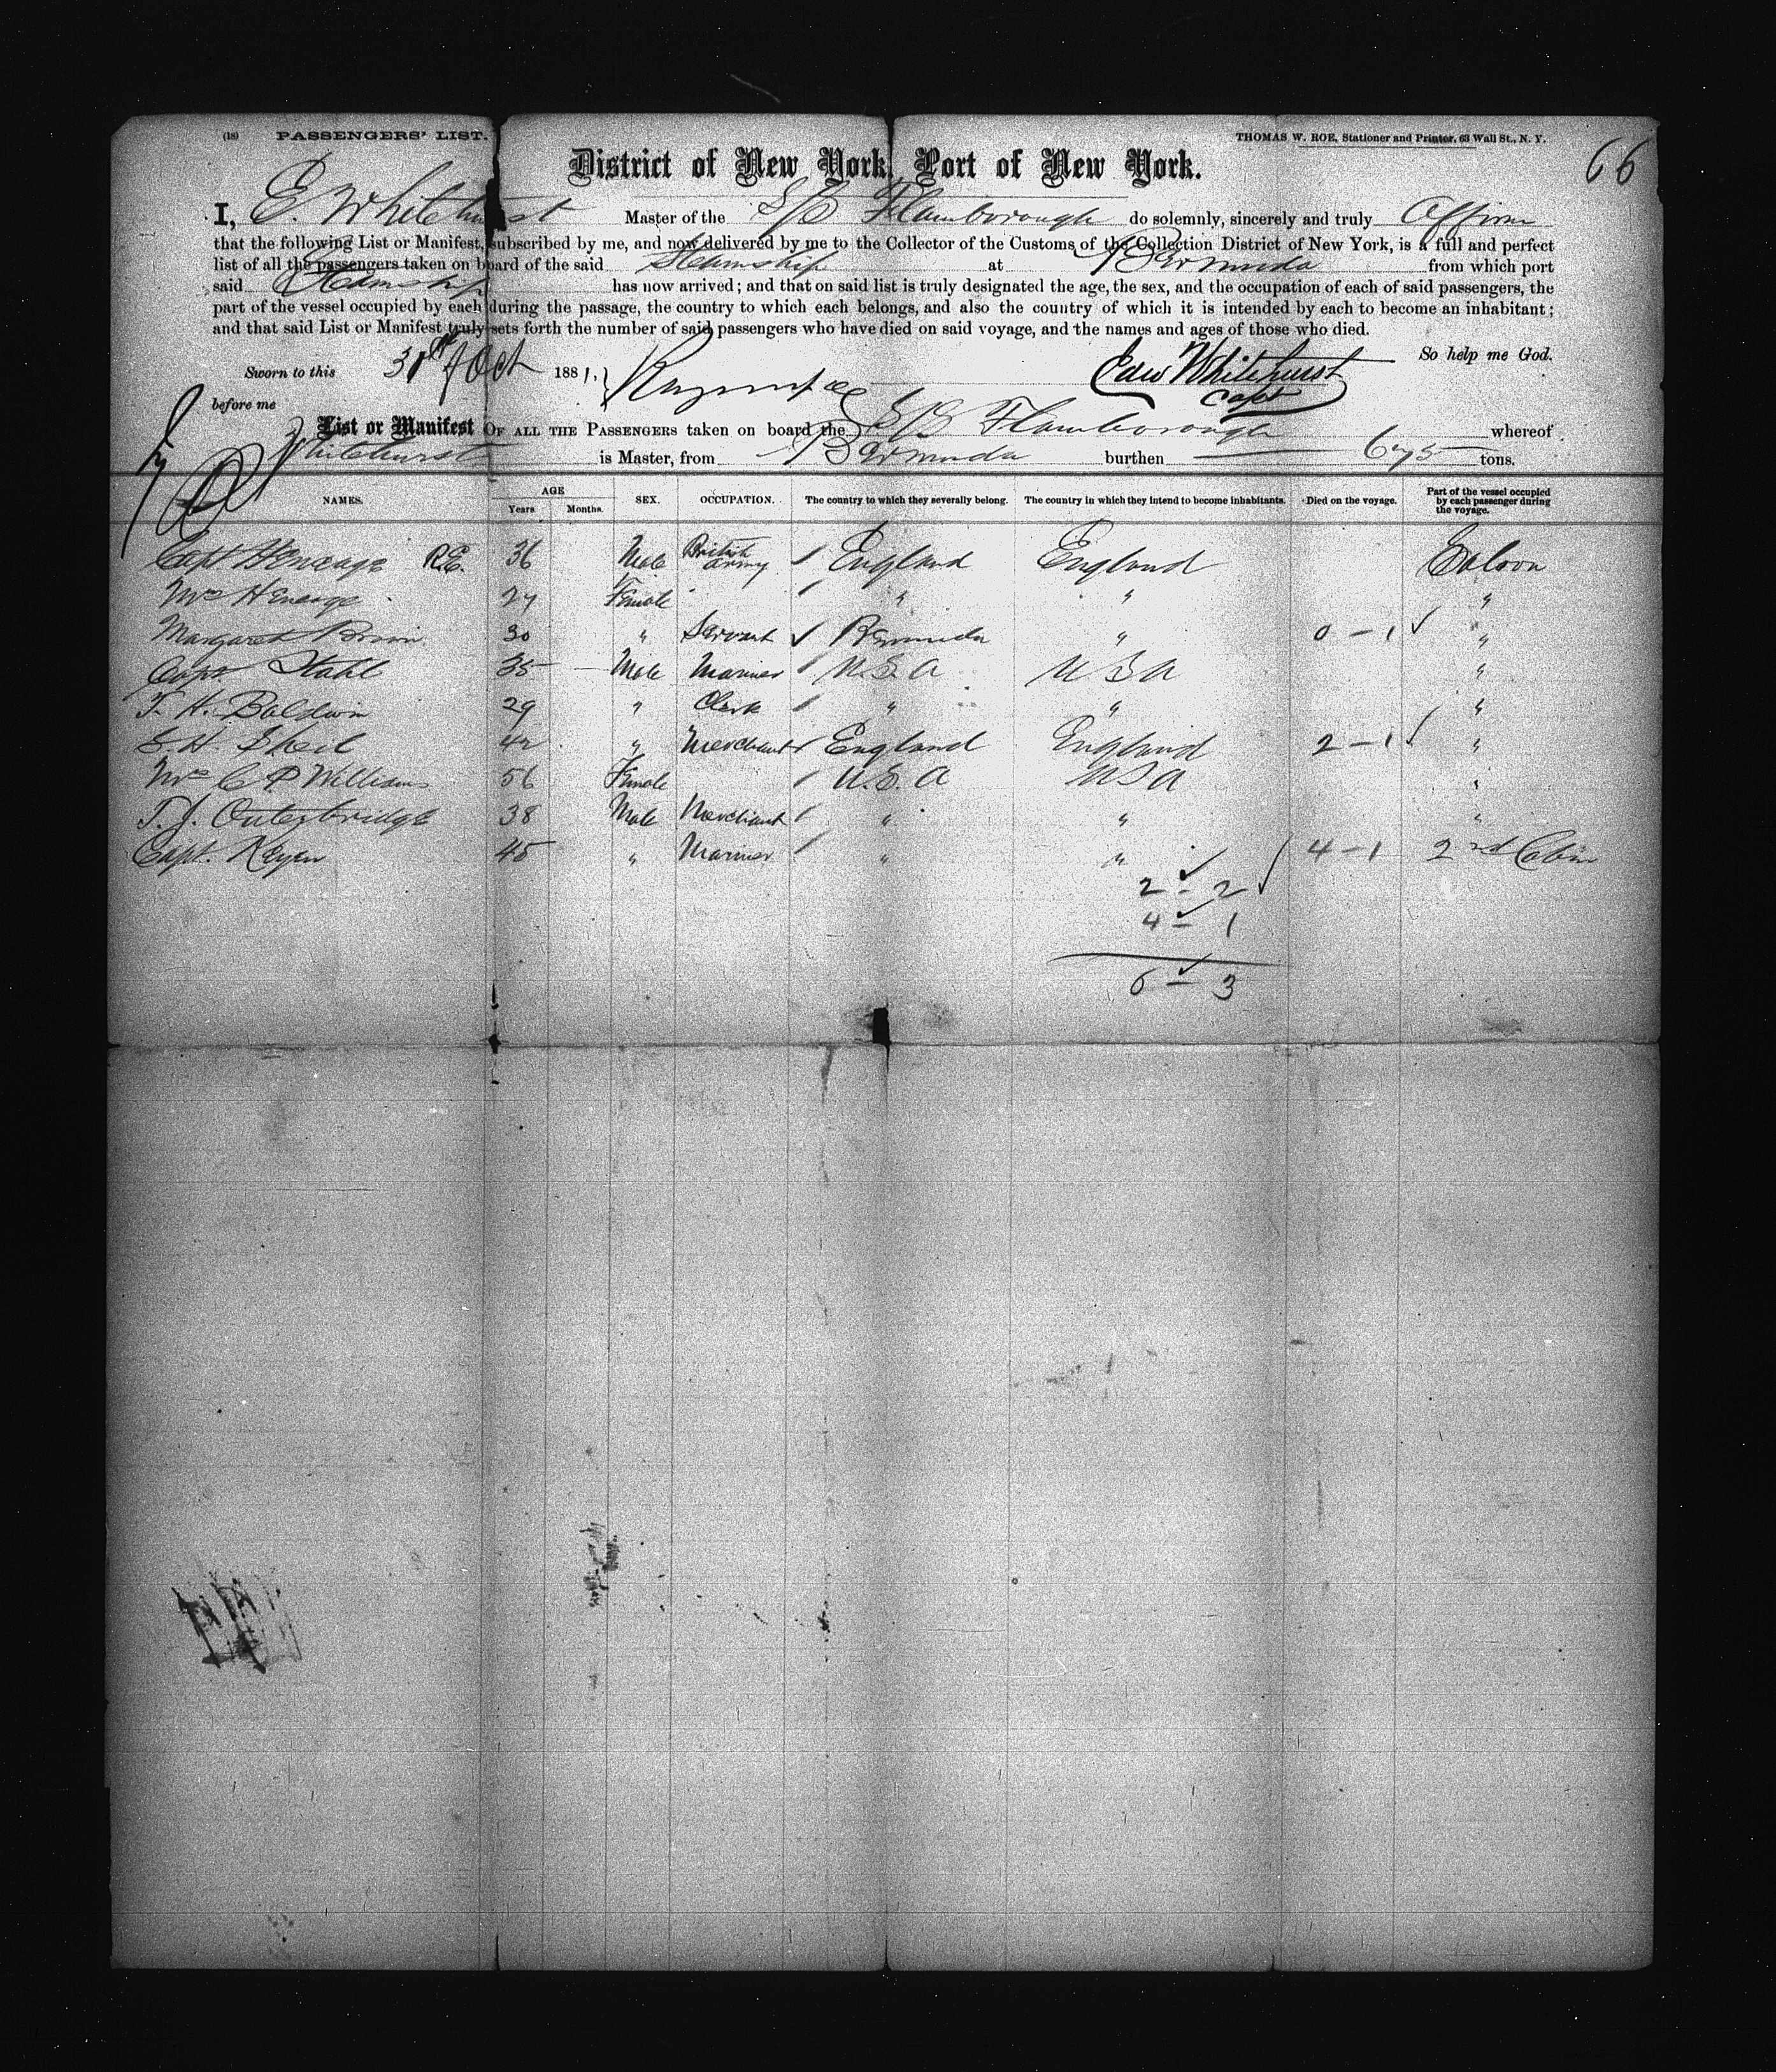 (18) PASSENGERS' LIST.
THOMAS W. ROE, Stationer and Printer, 63 Wall St., N. Y.
66
District of New York, Port of New York.
I, E. Whitehurst Master of the S/S Flamborough do solemnly, sincerely and truly Affirm
that the following List or Manifest, subscribed by me, and now delivered by me to the Collector of the Customs of the Collection District of New York, is a full and perfect
list of all the passengers taken on board of the said Steamship at Bermuda from which port
said Steamship has now arrived; and that on said list is truly designated the age, the sex, and the occupation of each of said passengers, the
part of the vessel occupied by each during the passage, the country to which each belongs, and also the country of which it is intended by each to become an inhabitant;
and that said List or Manifest truly sets forth the number of said passengers who have died on said voyage, and the names and ages of those who died.
So help me God.
Sworn to this 31st of Oct 1881,
Edw Whitehurst
Capt
before me
List or Manifest OF ALL THE PASSENGERS taken on board the S/S Flamborough whereof
Whitehurst is Master, from Bermuda burthen tons.
NAMES. AGE Years Months. SEX. OCCUPATION. The country to which they severally belong. The country in which they intend to become inhabitants. Died on the voyage. Part of the vessel occupied by each passenger during the voyage.
Capt Heneage R.E. 36 Male British Army England England Saloon
Mrs Heneage 27 Female " " "
Margaret 30 " Servant Bermuda " 0-1 "
Capt Stahl 35 Male Mariner U.S.A USA "
T. H. Baldwin 29 " Clerk " " "
S. H. Sheil 42 " Merchant England England 2-1 "
Mrs C P Williams 56 Female U.S.A USA "
T. J. Outerbridge 38 Male Merchant " " "
Capt. 45 " Mariner " " 4-1 2nd Cabin
2 - 2
4 - 1
6 - 3